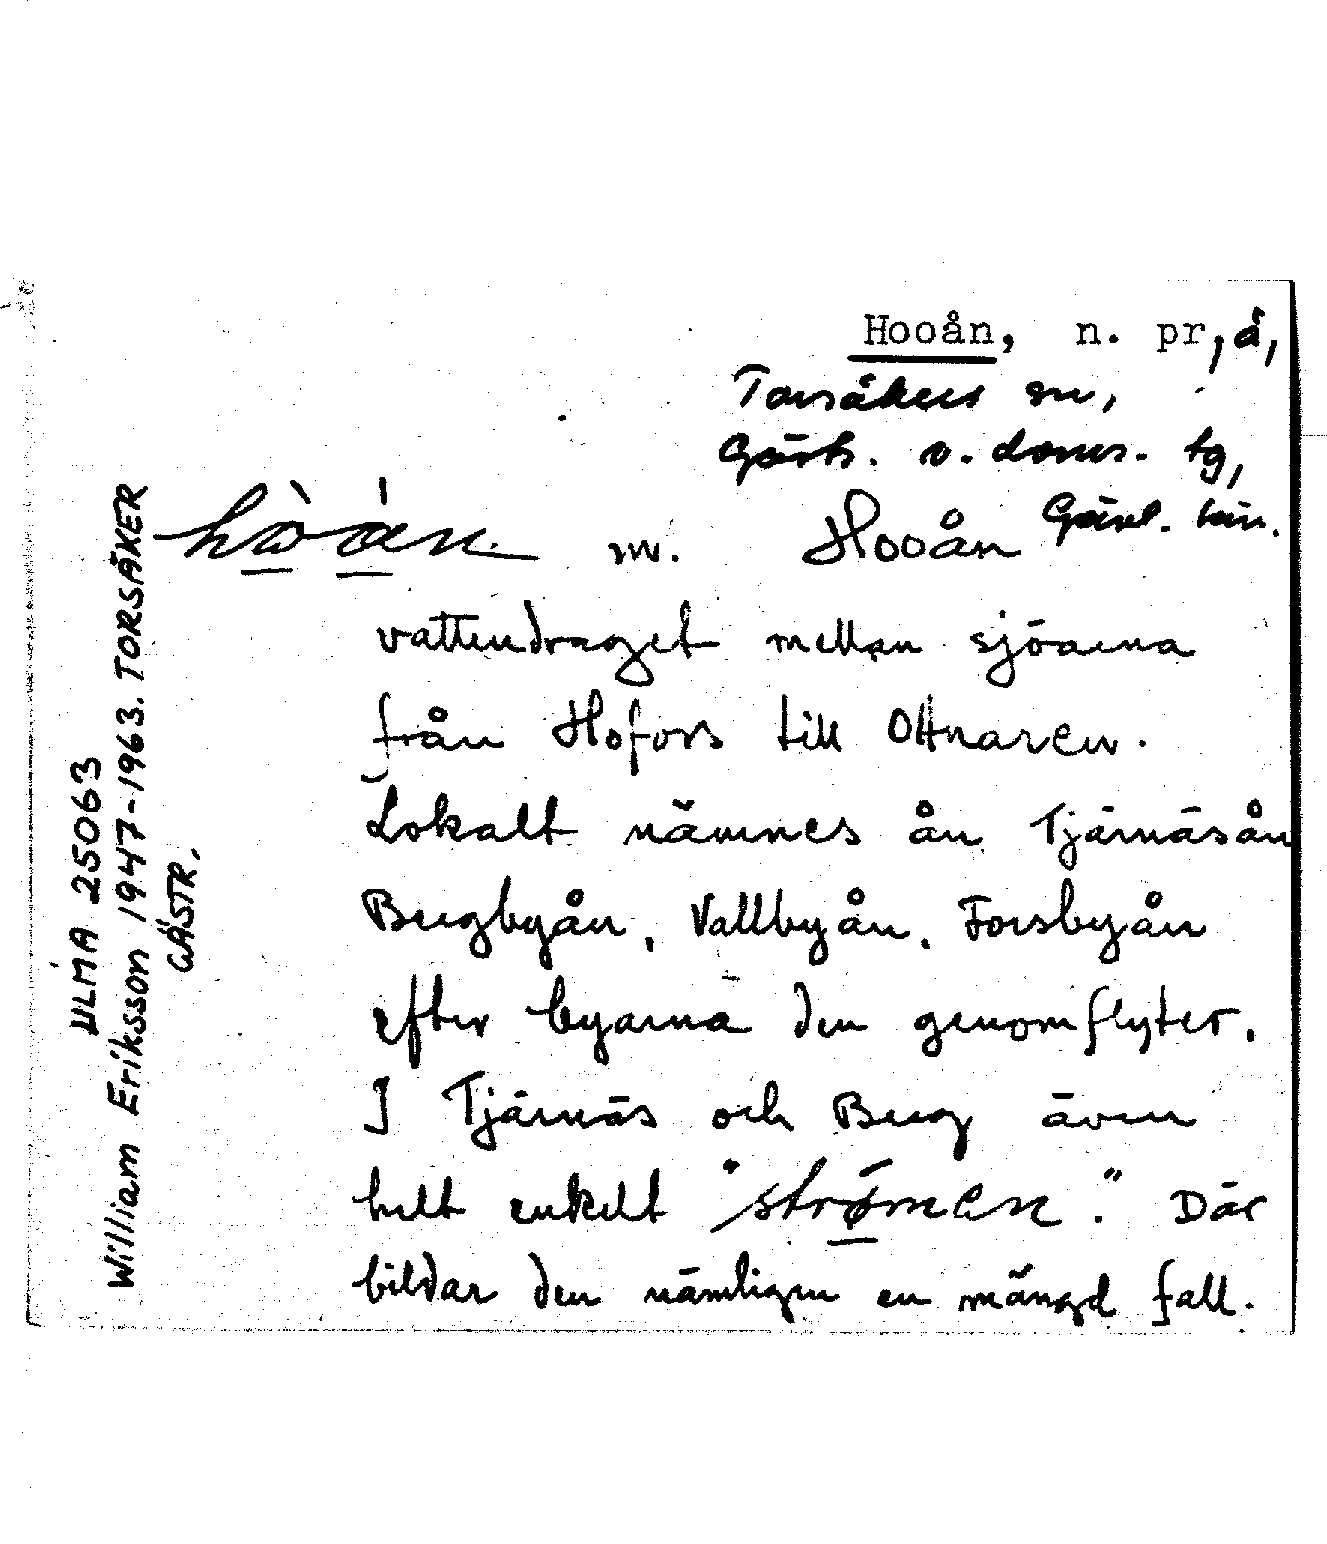 Hooån, n. pr, å,
Torsåkers sn,
Gästr. v. doms. tg,
Gävl. län.
m. Hooån
vattendraget mellan sjöarna
från Hofors till Ottnaren.
Lokalt nämnes ån Tjärnäsån
Bergbyån, Vallbyån, Forsbyån
efter byarna den genomflyter.
I Tjärnäs och Berg även
helt enkelt "strømen". Där
bildar den nämligen en mängd fall.
ULMA 25063
William Eriksson 1947-1963. TORSÅKER
GÄSTR.